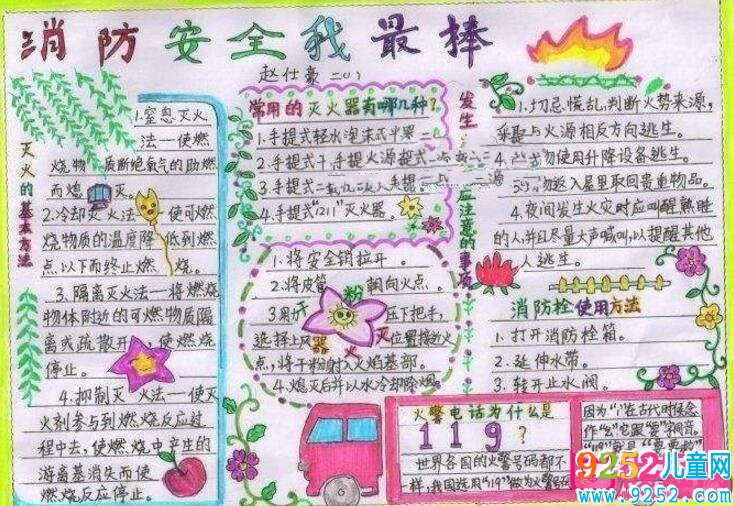 消防安全我最棒
赵仕豪 二(1)
灭火的基本方法
1.窒息灭火
法——使燃
烧物质断绝氧气的助燃
而熄灭。
2.冷却灭火法——使可燃
烧物质的温度降低到燃
点以下而终止燃烧。
3.隔离灭火法——将燃烧
物体附近的可燃物质隔
离或疏散开,使燃烧
停止。
4.抑制灭火法——使灭
火剂参与到燃烧反应过
程中去,使燃烧中产生的
游离基消失而使
燃烧反应停止。
常用的灭火器有哪几种?
1.手提式轻水泡沫灭火器
2.手提式干
3.手提式二
4.手提式"1211"灭火器。
干粉灭火器
1.将安全销拉开。
2.将皮管朝向火点。
3.用力压下把手,
选择上风位置接近火
点,将干粉射入火焰基部。
4.熄灭后并以水冷却除烟。
发生
应注意的事项
1.切忌慌乱,判断火势来源,
采取与火源相反方向逃生。
勿使用升降设备逃生。
勿返入屋里取回贵重物品。
4.夜间发生火灾时应叫醒熟睡
的人并且尽量大声喊叫,以提醒其他
人逃生。
消防栓使用方法
1.打开消防栓箱。
2.延伸水带。
3.转开止水阀。
火警电话为什么是
119?
世界各国的火警号码都不
一样,我国选用"119"做为火警号码
因为"1"在古代时候念
作"幺",它跟"要"同音。
"119"就是"要要救"
9252儿童网
www.9252.com